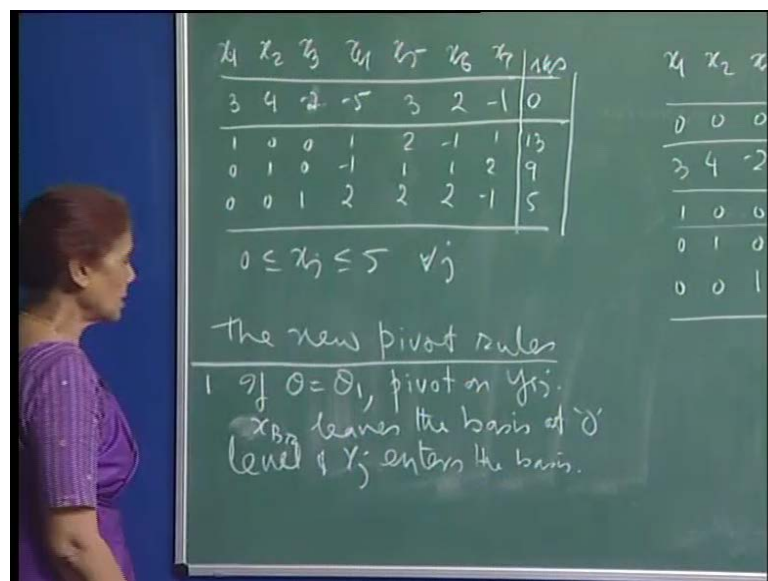 x₁ x₂ x₃ x₄ x₅ x₆ x₇ RHS
3 4 -2 -5 3 2 -1 0
1 0 0 1 2 -1 1 13
0 1 0 -1 1 1 2 9
0 0 1 2 2 2 -1 5
0 ≤ xⱼ ≤ 5 ∀j
The new pivot rules
1 If θ = θ₁, pivot on yᵣⱼ.
leaves the basis at '0'
level & Yⱼ enters the basis.
x₁ x₂
0 0 0
3 4 -2
1 0 0
0 1 0
0 0 1